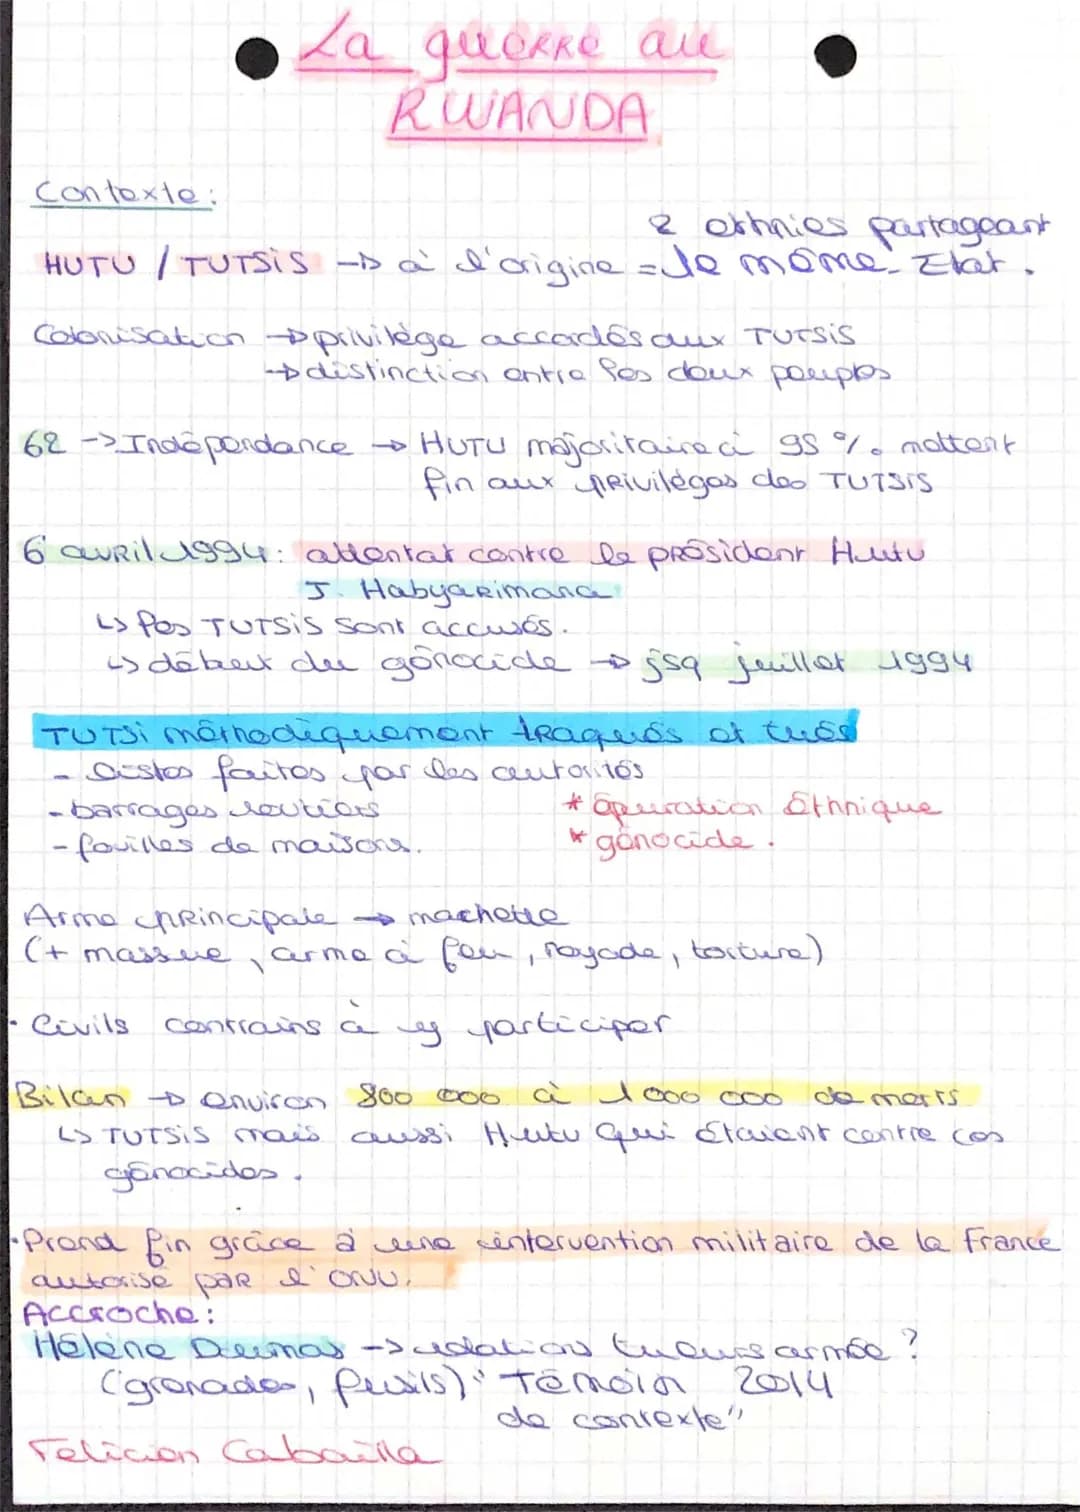 La guerre au
RWANDA
Contexte:
2 ethnies partageant
HUTU / TUTSIS -> à l'origine = le même Etat.
Colonisation -> privilége accordés aux TUTSIS
-> distinction entre les deux peuples
62 -> Indépendance -> HUTU majoritaire à 95 %. mettent
fin aux privilèges des TUTSIS
6 avril 1994: attentat contre le président Hutu
J. Habyarimana
↳ les TUTSIS sont accusés.
↳ début du génocide -> jsq juillet 1994
TUTSI méthodiquement traqués et tués
- Listes faites par les autorités
- barrages routiers
* épuration Ethnique
- fouilles de maisons.
* génocide.
Arme principale -> machette
(+ massue, arme à feu, noyade, torture)
· Civils contrains à y participer
Bilan -> environ 800 000 à 1 000 000 de morts
↳ TUTSIS mais aussi Hutu qui étaient contre ces
génocides.
·Prend fin grâce à une intervention militaire de la France
autorisé par l'ONU.
Accroche:
Hélène Dumas -> relation tueurs armée ?
(grenades, fusils) "Témoin 2014
de contexte"
Felicien Cabailla